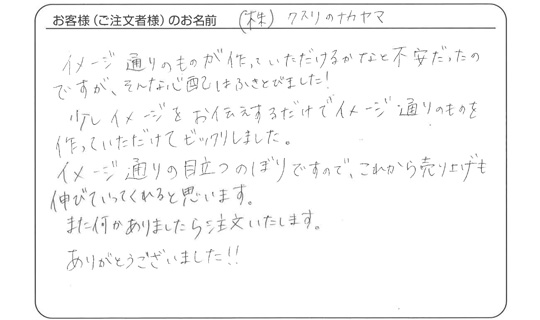 お客様（ご注文者様）のお名前 (株) クスリのナカヤマ
イメージ通りのものが作っていただけるかなと不安だったの
ですが、そんな心配はふきとびました!
少しイメージをお伝えするだけでイメージ通りのものを
作っていただけてビックリしました。
イメージ通りの目立つのぼりですので、これから売り上げも
伸びていってくれると思います。
また何かありましたら注文いたします。
ありがとうございました!!